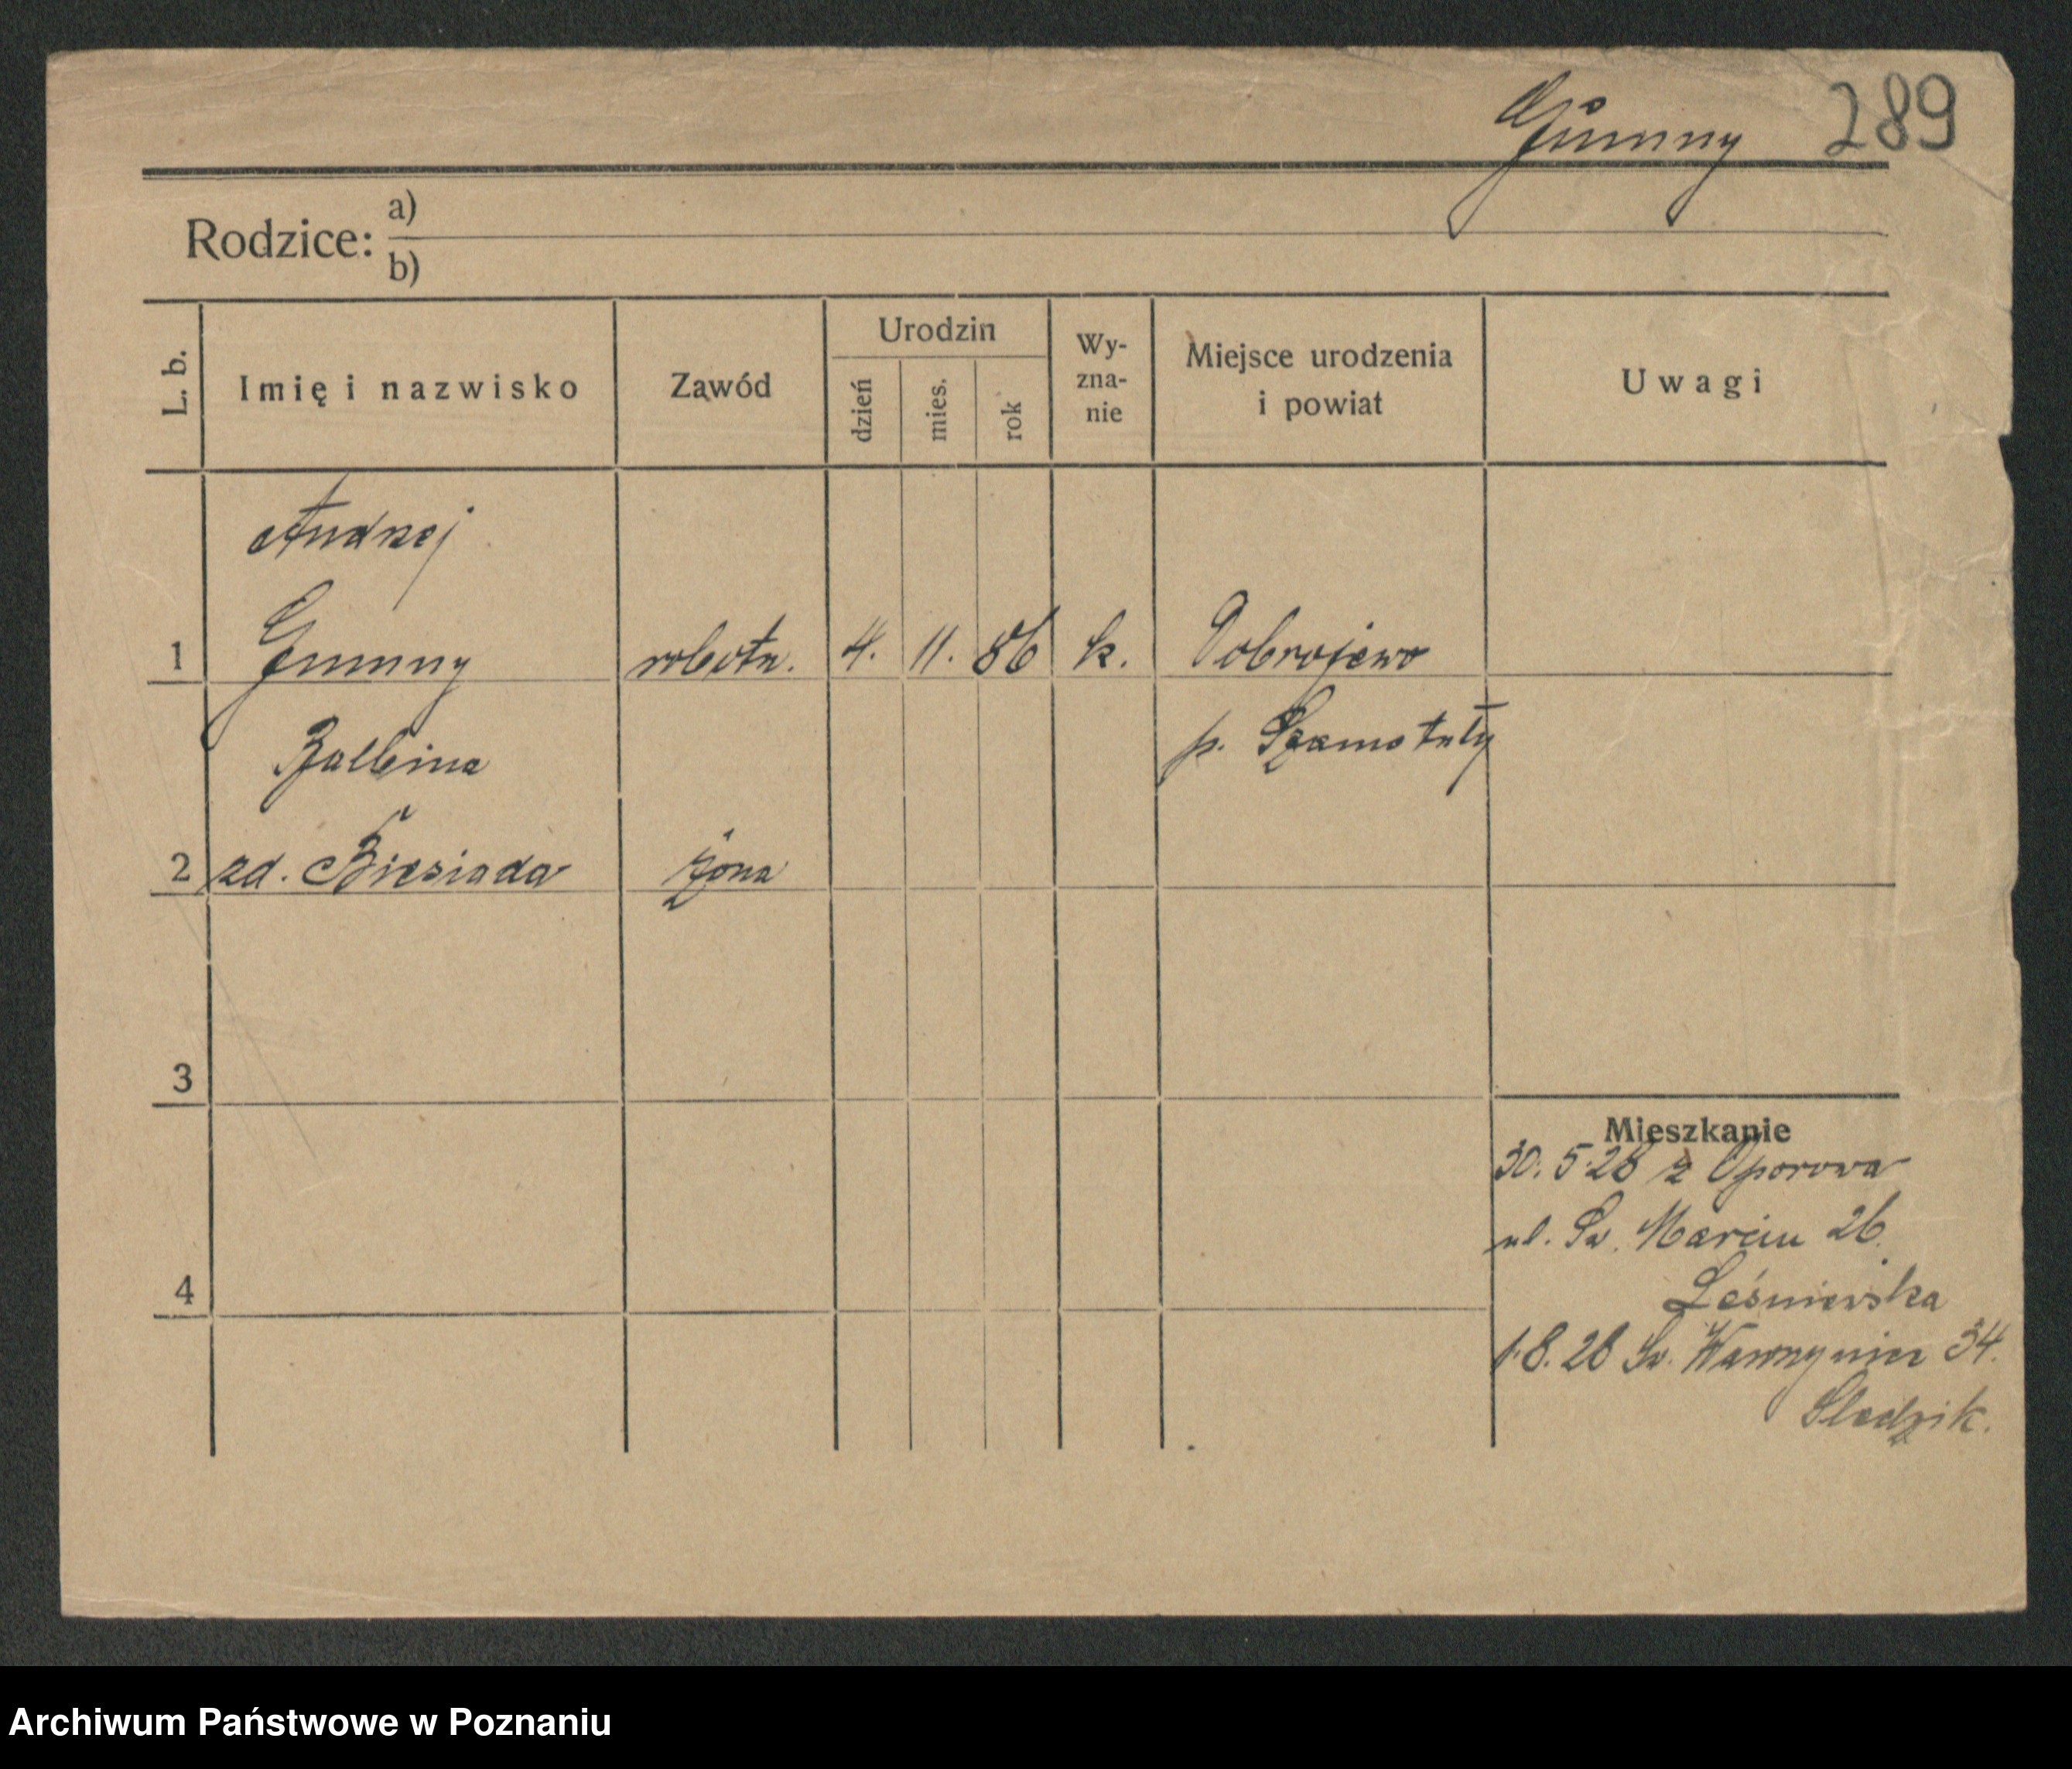 Gumny 289
Rodzice: a)
b)
L. b. Imię i nazwisko Zawód Urodzin dzień mies. rok Wy-zna-nie Miejsce urodzenia i powiat Uwagi
Andrzej
1 Gumny robotn. 4. 11. 86 k. Dobrojewo
Balbina p. Szamotuły
2 zd. Biesiada żona
3
Mieszkanie
30. 5. 28 z Oporowa
ul. Św. Marcin 26.
4 Leśniewska
1. 8. 28 Św. Wawrzyniec 34.
Sledzik.
Archiwum Państwowe w Poznaniu